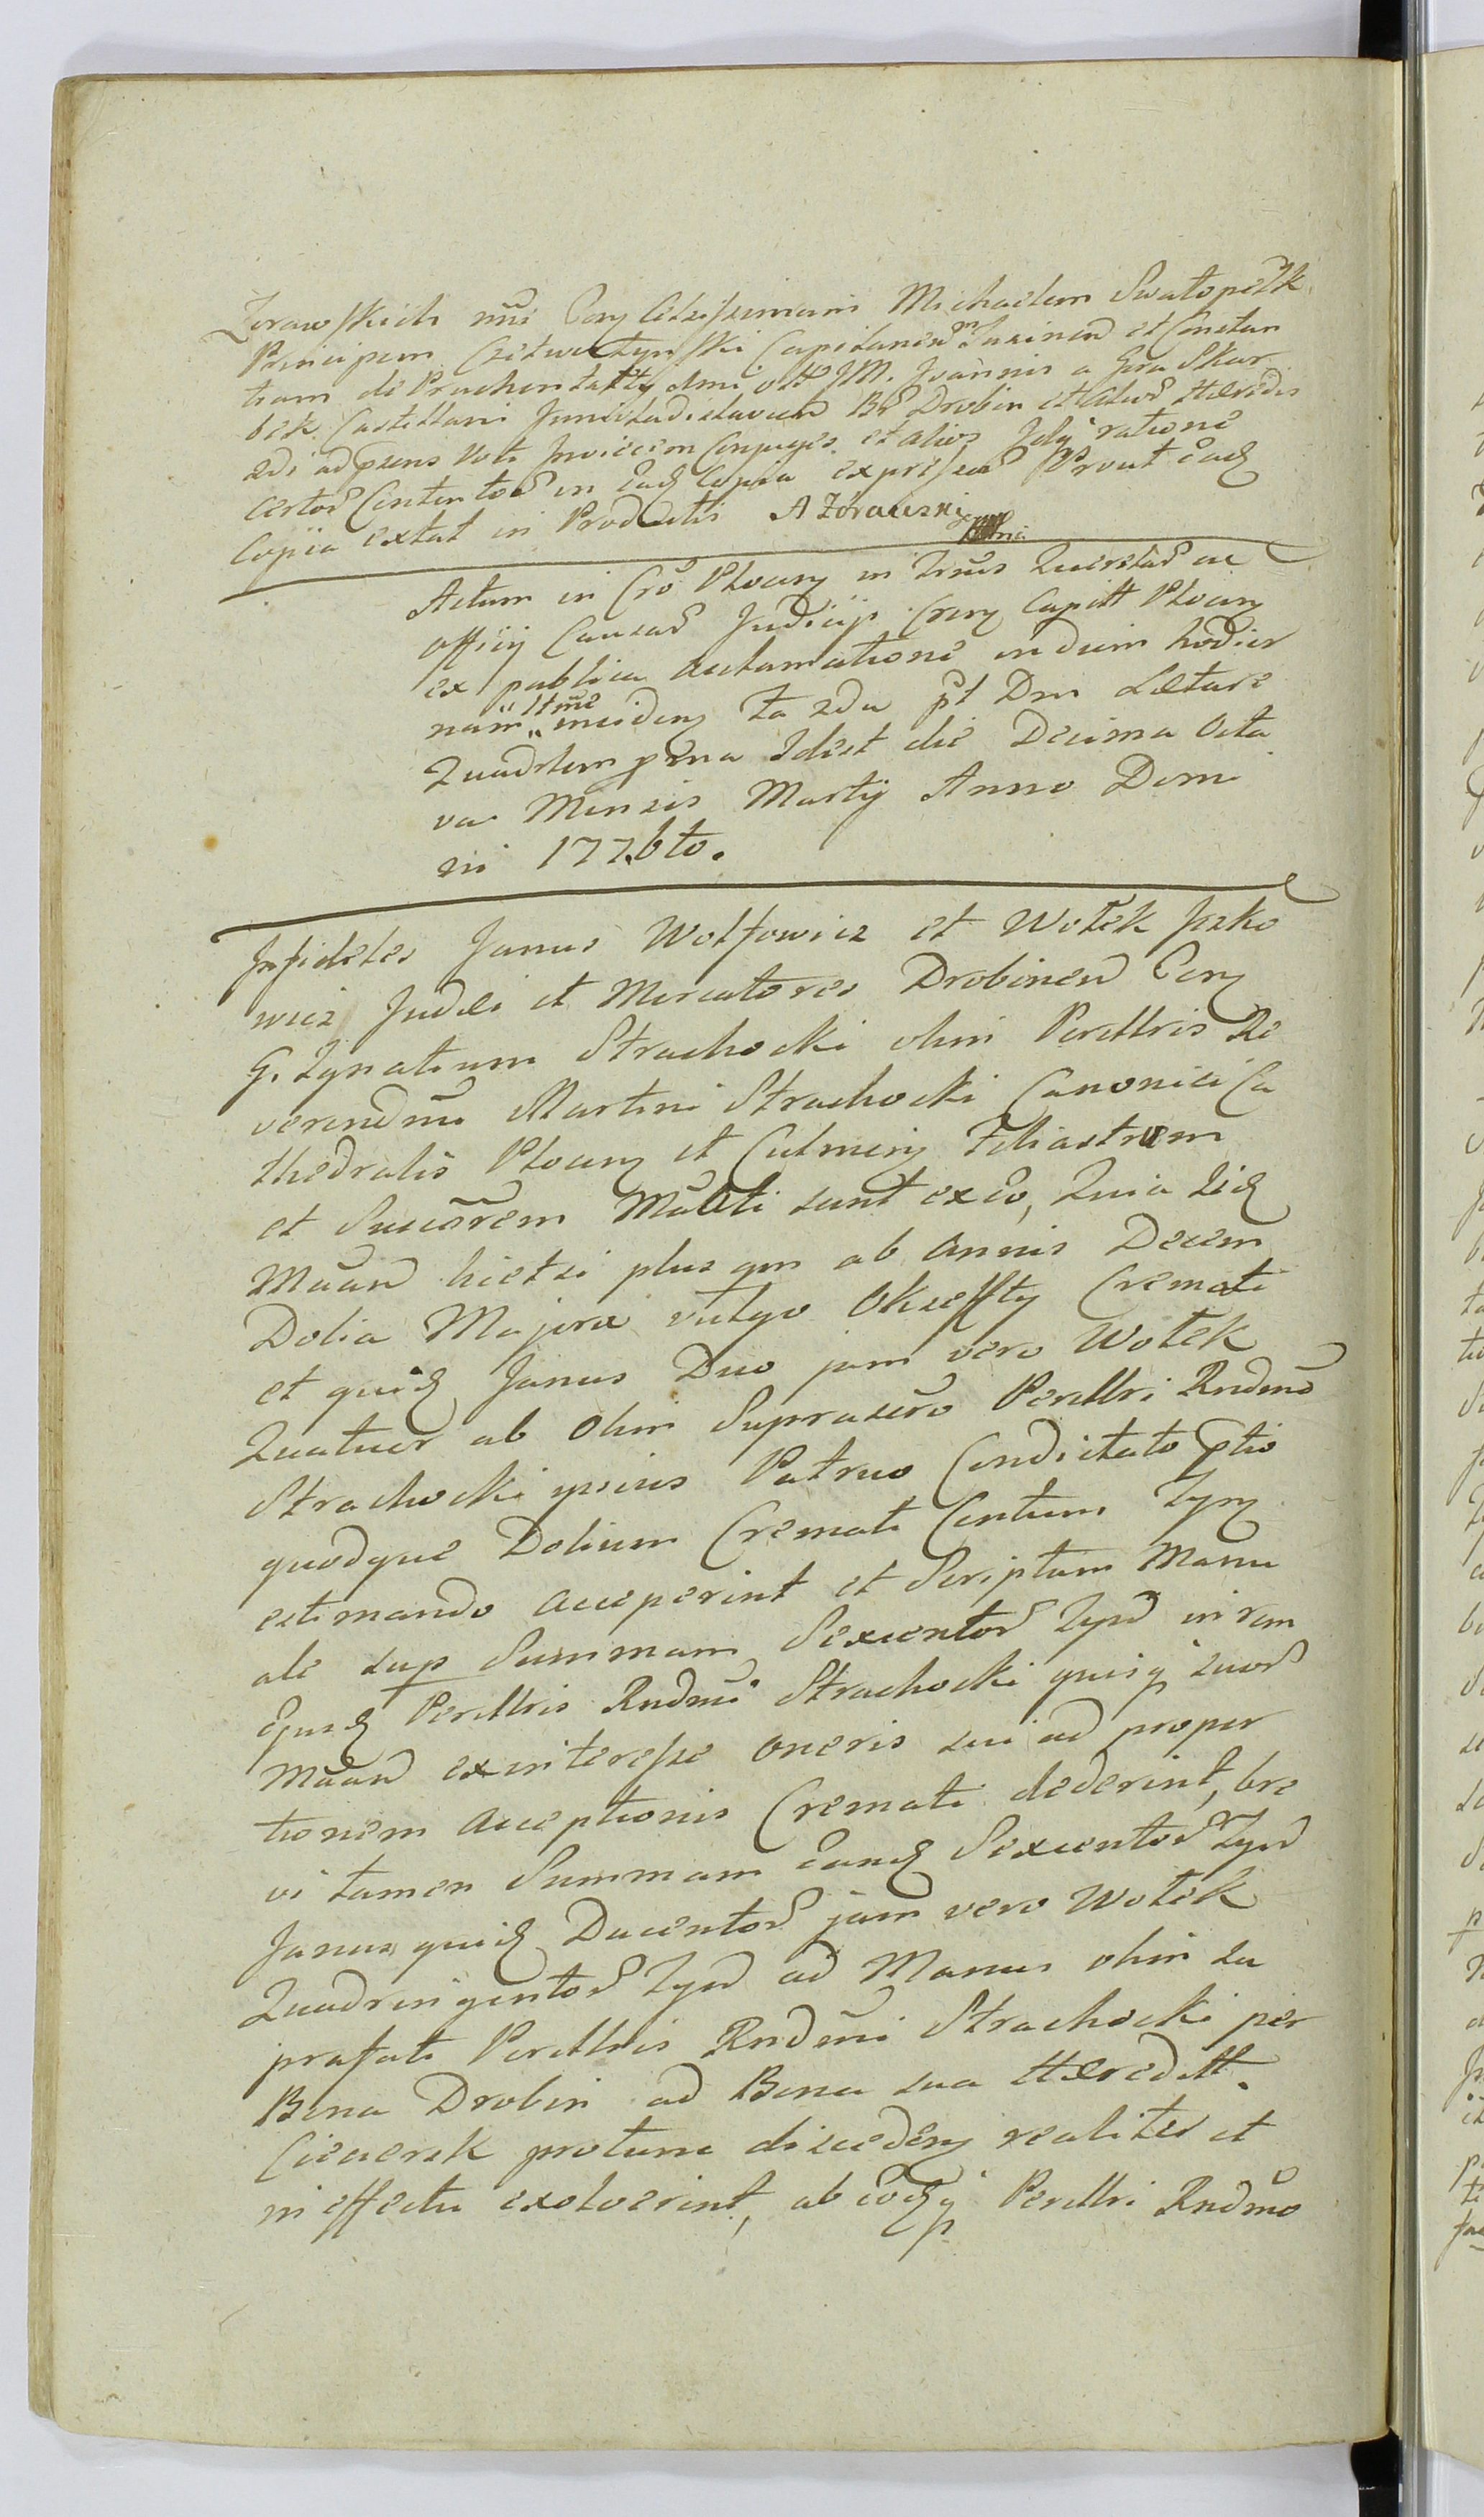 Zorawskich nne Cony Celsissimum Michaelem Swatopełk
Principem Czetwertynski Capitaneum Jasinen et Constan
tiam de Pruchentakty dmi olt JM. Joannis a Gora Skar
bek Castellani Junivladislavien Br Drobin et alior Hæredis
2di ad psens Voti Invicem Conjuges et alios Idq ratione
certor Contentor in Eadq Copia expressar Prout Eadq
Copia extat in Productis A Zórawski
Actum in Cro Plocen in Trnis Querelar ac
officij Causar Judicij Cren Capitt Plocen
ex publica acclamatione in diem hodier
nam Itme inciden ta 2da pt Dm Lætare
Quadrlem pena Idest die Decima Octa
va Mensis Martij Anno Domi
ni 1776to.
Infideles Janus Wolfowicz et Wołek Jzko
wicz Judei et Mercatores Drobinen Cony
G. Ignatium Strachocki olim Perillris Re
verendmi Martini Strachocki Canonici Ca
thedralis Plocen et Culmen Filiastrum
et Succorem Mulcti sunt exco, Quia Lidq
Muan licet si plus qm ab annis Decem
Dolia Majora vulgo Okseffty Cremati
et quidq Janus Duo jam vero Wołek
Quatuor ab Olim Suprascro Perillri Rndmo
Strachocki ipsius Patruo Condictato ptio
quodque Dolium Cremati Centum Tyn
estimando acceperint et Scriptum Manu
ale sup Summam Sexcentor Tynf in rem
Ejusdq Perillris Rndmi Strachocki quisq suor
Muan ex interesse oneris sui ad propor
tionem acceptionis Cremati dederint, bre
vi tamen Summam Eandq Sexcentor Tynf
Janus quidq Ducentor jam vero Wołek
Quadringentor Tynf ad Manus olim su
prafati Perillris Rndmi Strachocki per
Bona Drobin ad Bona sua Hæreditt.
Ciewersk protunc disceden realiter et
in effectu exolverint, ab eodq Perillri Rndmo